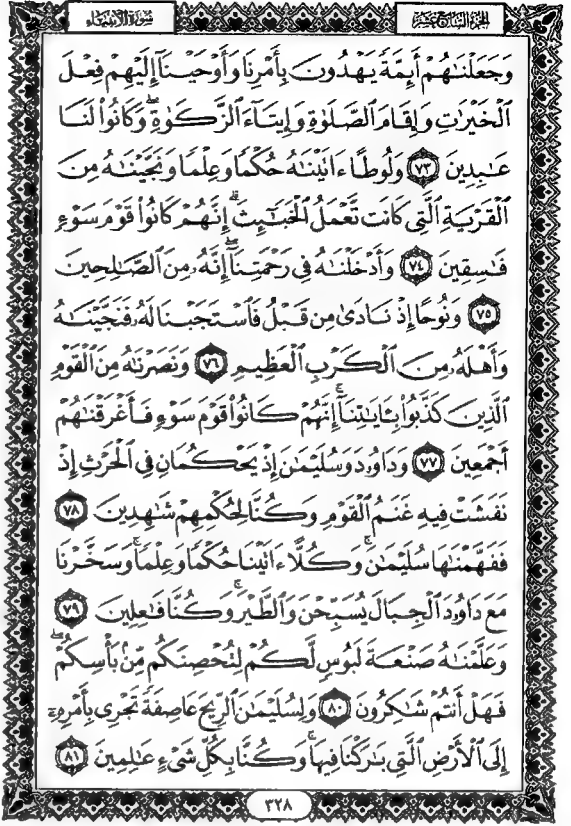 سُورَةُ الْأَنبِيَاءِ
الجُزْءُ السَّابِعَ عَشَرَ
وَجَعَلْنَٰهُمْ أَئِمَّةً يَهْدُونَ بِأَمْرِنَا وَأَوْحَيْنَآ إِلَيْهِمْ فِعْلَ
ٱلْخَيْرَٰتِ وَإِقَامَ ٱلصَّلَوٰةِ وَإِيتَآءَ ٱلزَّكَوٰةِۖ وَكَانُوا۟ لَنَا
عَٰبِدِينَ ٧٣ وَلُوطًا ءَاتَيْنَٰهُ حُكْمًا وَعِلْمًا وَنَجَّيْنَٰهُ مِنَ
ٱلْقَرْيَةِ ٱلَّتِى كَانَت تَّعْمَلُ ٱلْخَبَٰٓئِثَۗ إِنَّهُمْ كَانُوا۟ قَوْمَ سَوْءٍ
فَٰسِقِينَ ٧٤ وَأَدْخَلْنَٰهُ فِى رَحْمَتِنَآۖ إِنَّهُۥ مِنَ ٱلصَّٰلِحِينَ
٧٥ وَنُوحًا إِذْ نَادَىٰ مِن قَبْلُ فَٱسْتَجَبْنَا لَهُۥ فَنَجَّيْنَٰهُ
وَأَهْلَهُۥ مِنَ ٱلْكَرْبِ ٱلْعَظِيمِ ٧٦ وَنَصَرْنَٰهُ مِنَ ٱلْقَوْمِ
ٱلَّذِينَ كَذَّبُوا۟ بِـَٔايَٰتِنَآۚ إِنَّهُمْ كَانُوا۟ قَوْمَ سَوْءٍ فَأَغْرَقْنَٰهُمْ
أَجْمَعِينَ ٧٧ وَدَاوُۥدَ وَسُلَيْمَٰنَ إِذْ يَحْكُمَانِ فِى ٱلْحَرْثِ إِذْ
نَفَشَتْ فِيهِ غَنَمُ ٱلْقَوْمِ وَكُنَّا لِحُكْمِهِمْ شَٰهِدِينَ ٧٨
فَفَهَّمْنَٰهَا سُلَيْمَٰنَۚ وَكُلًّا ءَاتَيْنَا حُكْمًا وَعِلْمًاۚ وَسَخَّرْنَا
مَعَ دَاوُۥدَ ٱلْجِبَالَ يُسَبِّحْنَ وَٱلطَّيْرَۚ وَكُنَّا فَٰعِلِينَ ٧٩
وَعَلَّمْنَٰهُ صَنْعَةَ لَبُوسٍ لَّكُمْ لِتُحْصِنَكُم مِّنۢ بَأْسِكُمْۖ
فَهَلْ أَنتُمْ شَٰكِرُونَ ٨٠ وَلِسُلَيْمَٰنَ ٱلرِّيحَ عَاصِفَةً تَجْرِى بِأَمْرِهِۦٓ
إِلَى ٱلْأَرْضِ ٱلَّتِى بَٰرَكْنَا فِيهَاۚ وَكُنَّا بِكُلِّ شَىْءٍ عَٰلِمِينَ ٨١
٣٢٨